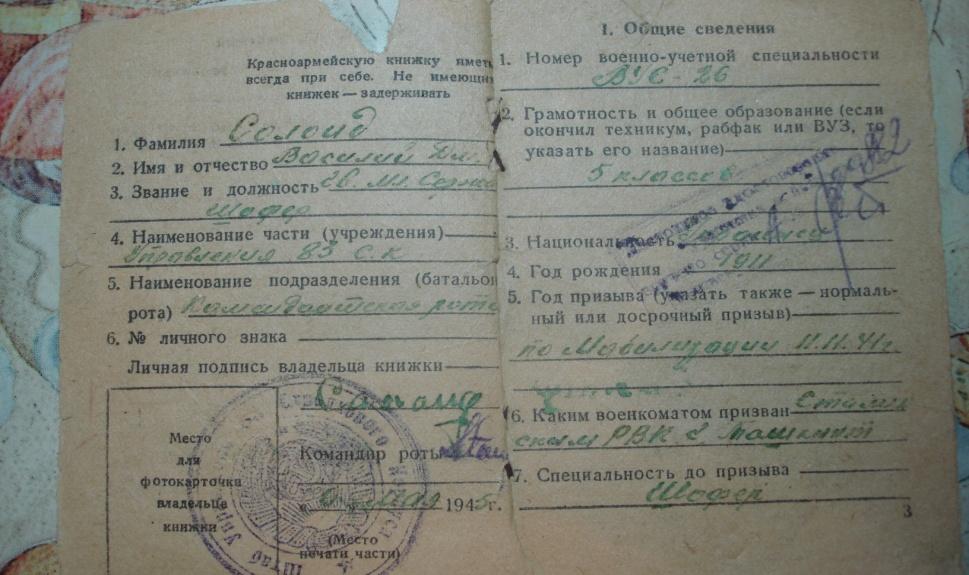 Красноармейскую книжку иметь
всегда при себе. Не имеющих
книжек — задерживать
1. Фамилия Солоид
2. Имя и отчество Василий
3. Звание и должность Гв. Мл.
Шофер
4. Наименование части (учреждения)
Управления 83 С.К
5. Наименование подразделения (батальон
рота) Комендантская рота
6. № личного знака
Личная подпись владельца книжки
Место
для
фотокарточки
владельца
книжки
Командир роты
мая 1945 г.
(Место
печати части)
Штаб
1. Общие сведения
1. Номер военно-учетной специальности
ВУС-26
2. Грамотность и общее образование (если
окончил техникум, рабфак или ВУЗ, то
указать его название)
5 классов
3. Национальность
4. Год рождения 1911
5. Год призыва (указать также — нормаль-
ный или досрочный призыв)
по Мобилизации 11.11.41г
6. Каким военкоматом призван Сталин
ским РВК г. Ташкент
7. Специальность до призыва
Шофер
3